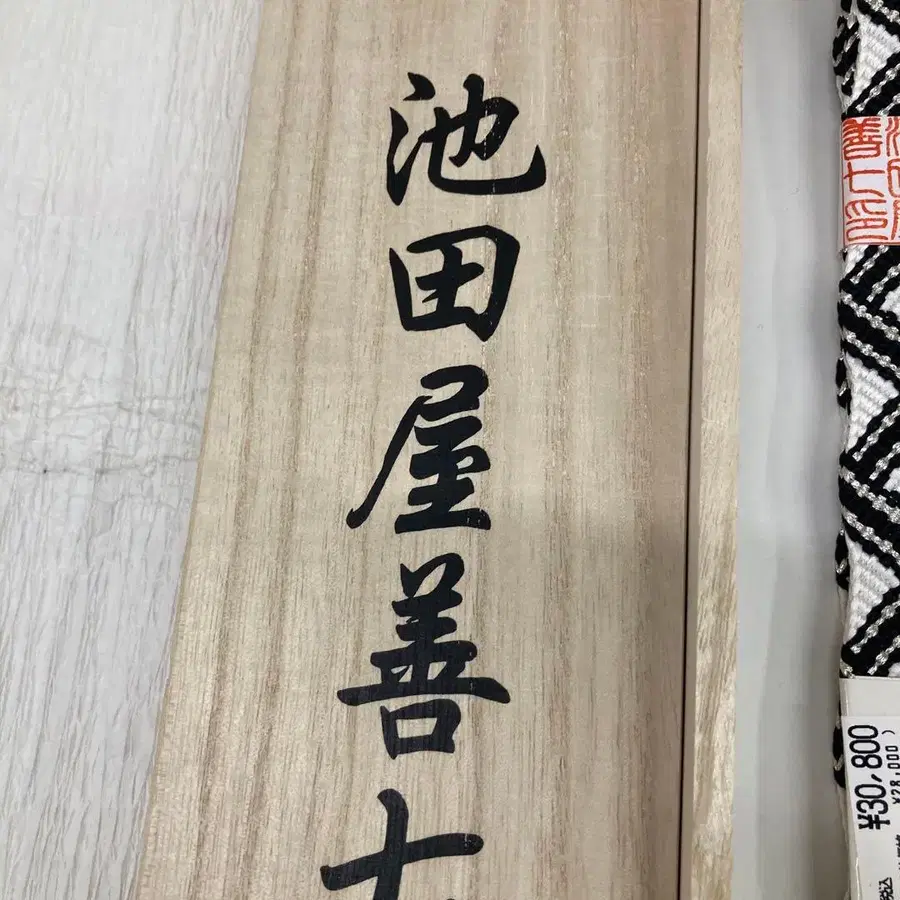 池田屋善七
善七印
¥30,800
¥28,000)
税込